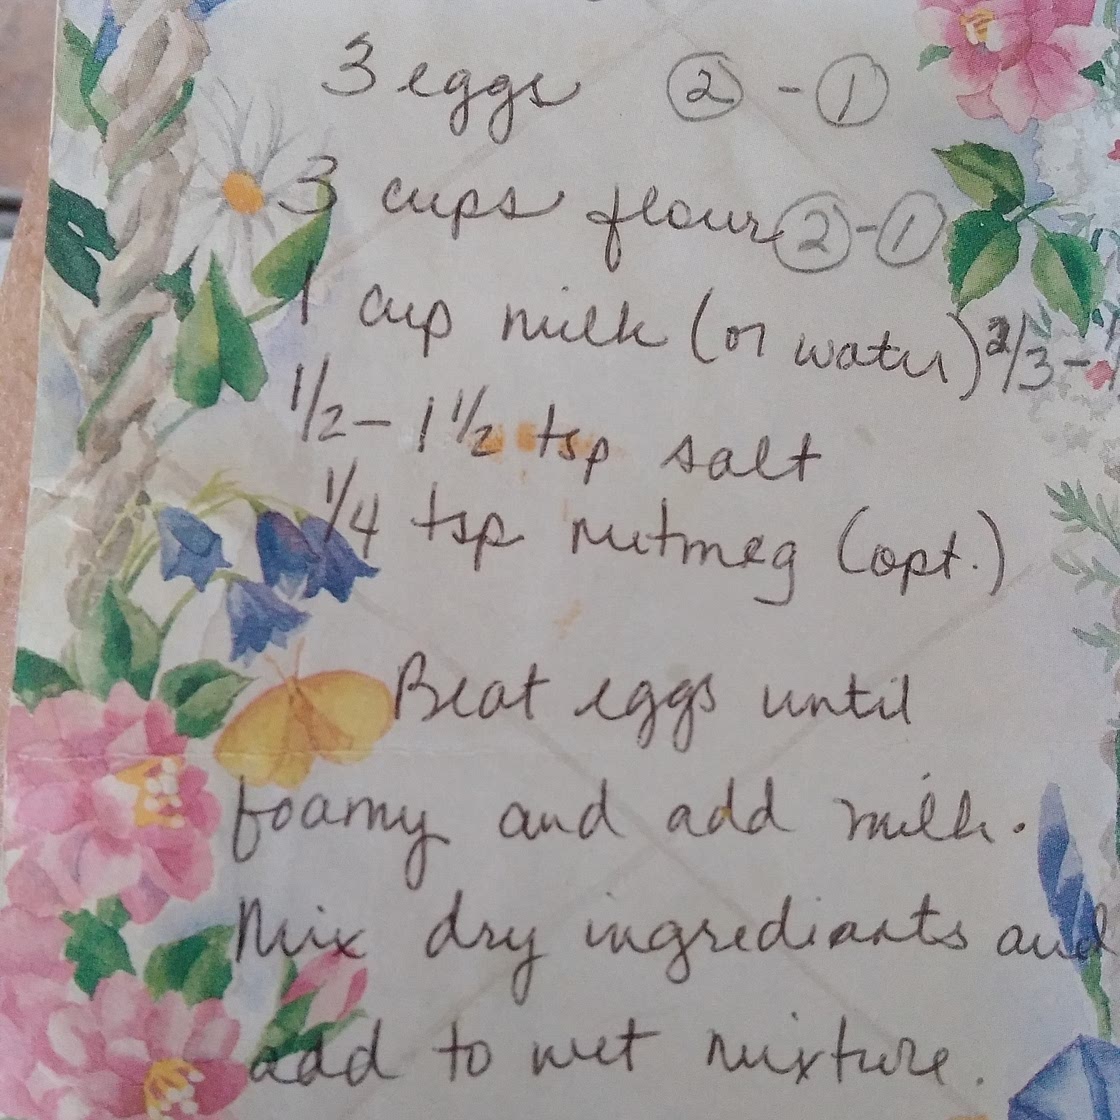 3 eggs ② - ①
3 cups flour ②-①
1 cup milk (or water) 2/3 -
1/2 - 1 1/2 tsp salt
1/4 tsp nutmeg (opt.)
Beat eggs until
foamy and add milk.
Mix dry ingrediants and
add to wet mixture.